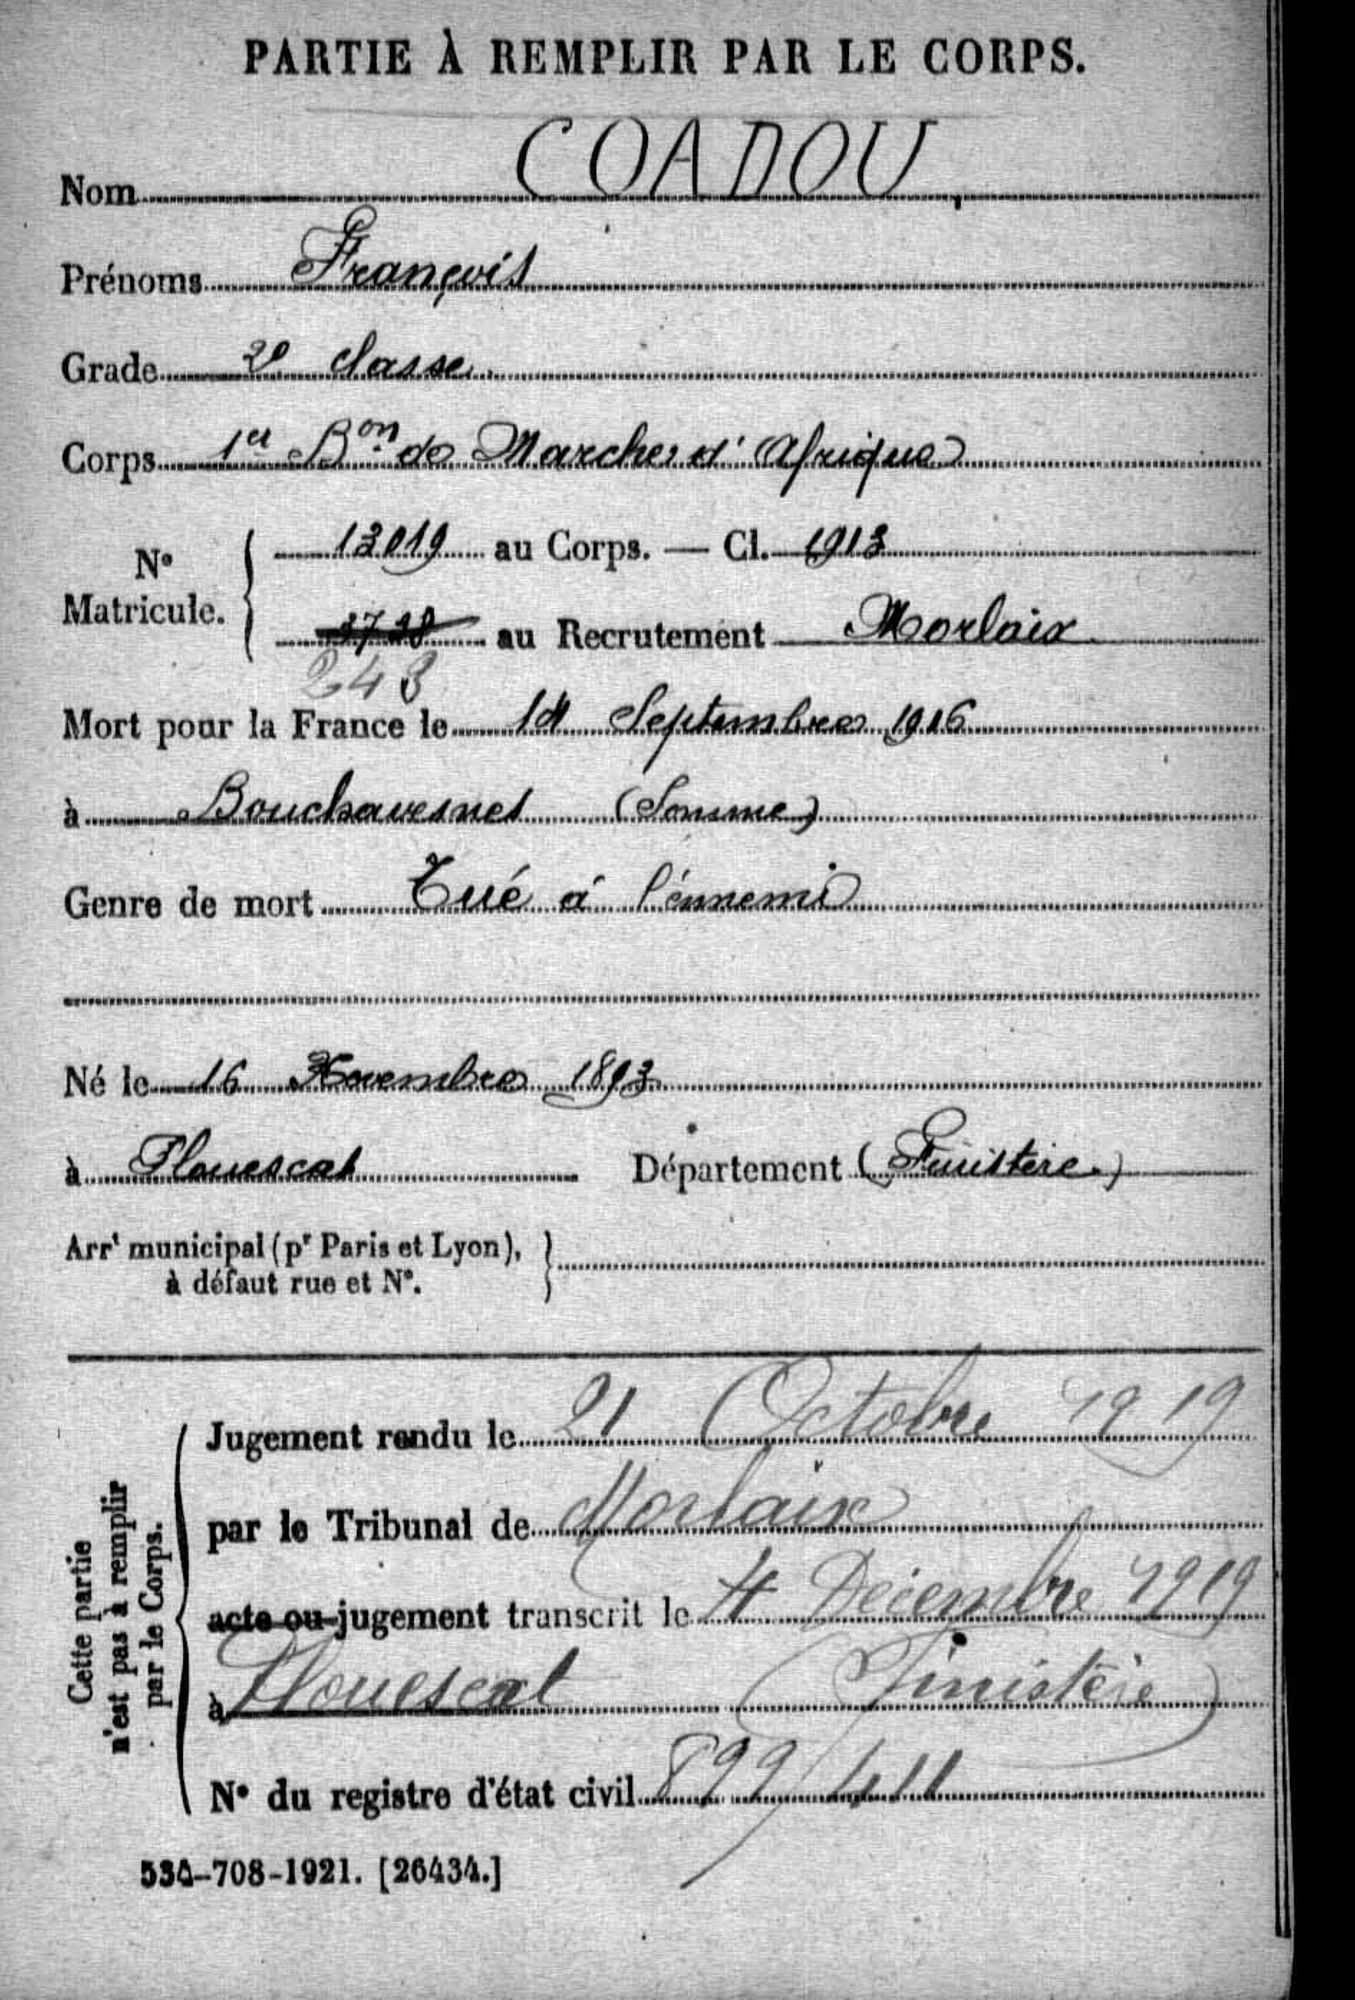 PARTIE À REMPLIR PAR LE CORPS.
Nom COADOU
Prénoms François
Grade 2e classe
Corps 1er Bon de Marche d'Afrique
No Matricule. 13019 au Corps. — Cl. 1913
3728 au Recrutement Morlaix
243
Mort pour la France le 14 Septembre 1916
à Bouchavesnes (Somme)
Genre de mort Tué à l'ennemi
Né le 16 Novembre 1893
à Plouescat Département (Finistère)
Arrt municipal (pr Paris et Lyon),
à défaut rue et No.
Cette partie
n'est pas à remplir
par le Corps.
Jugement rendu le 21 Octobre 1919
par le Tribunal de Morlaix
acte ou jugement transcrit le 4 Décembre 1919
à Plouescat (Finistère)
No du registre d'état civil 899/411
534-708-1921. [26434.]